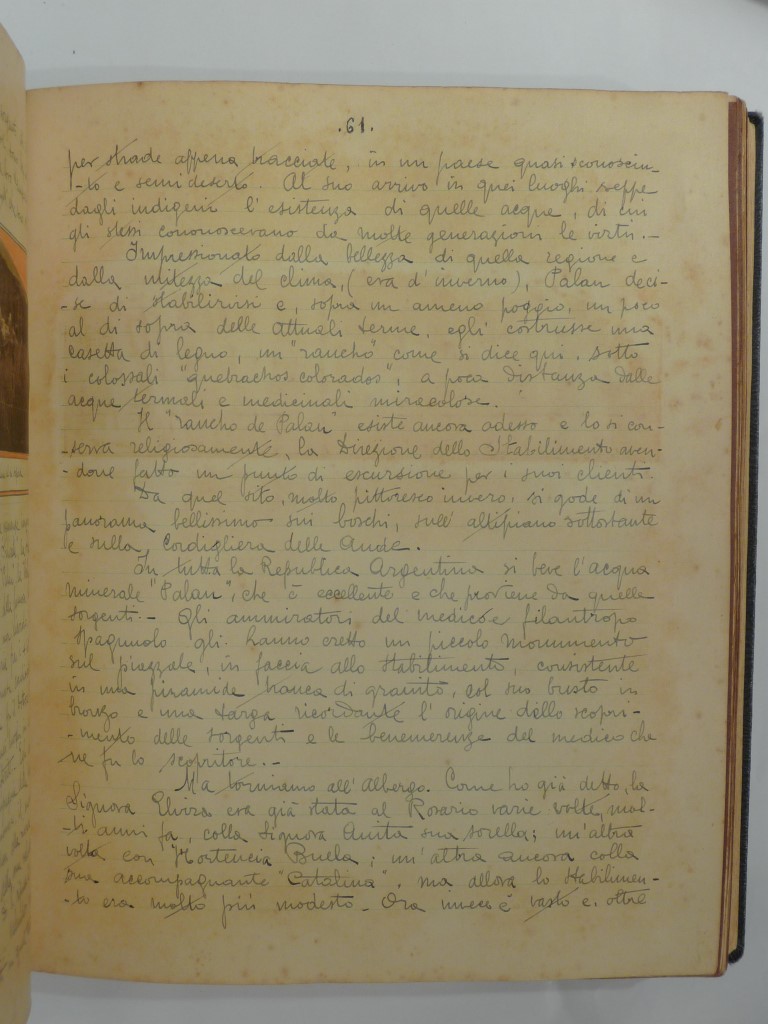 .61.
per strade appena tracciate, in un paese quasi sconosciu-
-to e semideserto. Al suo arrivo in quei luoghi seppe
dagli indigeni l'esistenza di quelle acque, di cui
gli stessi cononoscevano da molte generazioni le virtù.-
Impressionato dalla bellezza di quella regione e
dalla mitezza del clima, (era d'inverno), Palau deci-
-se di stabilirvisi e, sopra un ameno poggio, un poco
al di sopra delle attuali terme, egli costrusse una
casetta di legno, un "rancho" come si dice qui. sotto
i colossali "quebrachos colorados", a poca distanza dalle
acque termali e medicinali miracolose.
Il "rancho de Palau", esiste ancora adesso e lo si con-
-serva religiosamente, la Direzione dello Stabilimento aven-
-done fatto un punto di escursione per i suoi clienti.
Da quel sito, molto pittoresco invero, si gode di un
panorama bellissimo sui boschi, sull'altipiano sottostante
e sulla Cordigliera delle Ande.
In tutta la Republica Argentina si beve l'acqua
minerale "Palau", che è eccellente e che proviene da quelle
sorgenti.- Gli ammiratori del medico e filantropo
spagnuolo gli hanno eretto un piccolo monumento
sul piazzale, in faccia allo stabilimento, consistente
in una piramide tronca di granito, col suo busto in
bronzo e una targa ricordante l'origine dello scopri-
-mento delle sorgenti e le benemerenze del medico che
ne fu lo scopritore.-
Ma torniamo all'Albergo. Come ho già detto, la
Signora Elvira era già stata al Rosario varie volte, mol-
-ti anni fa, colla Signora Anita sua sorella; un'altra
volta con Hortencia Buela; un'altra ancora colla
sua accompagnante "Catalina". ma allora lo stabilimen-
-to era molto più modesto - Ora invece è vasto e, oltre